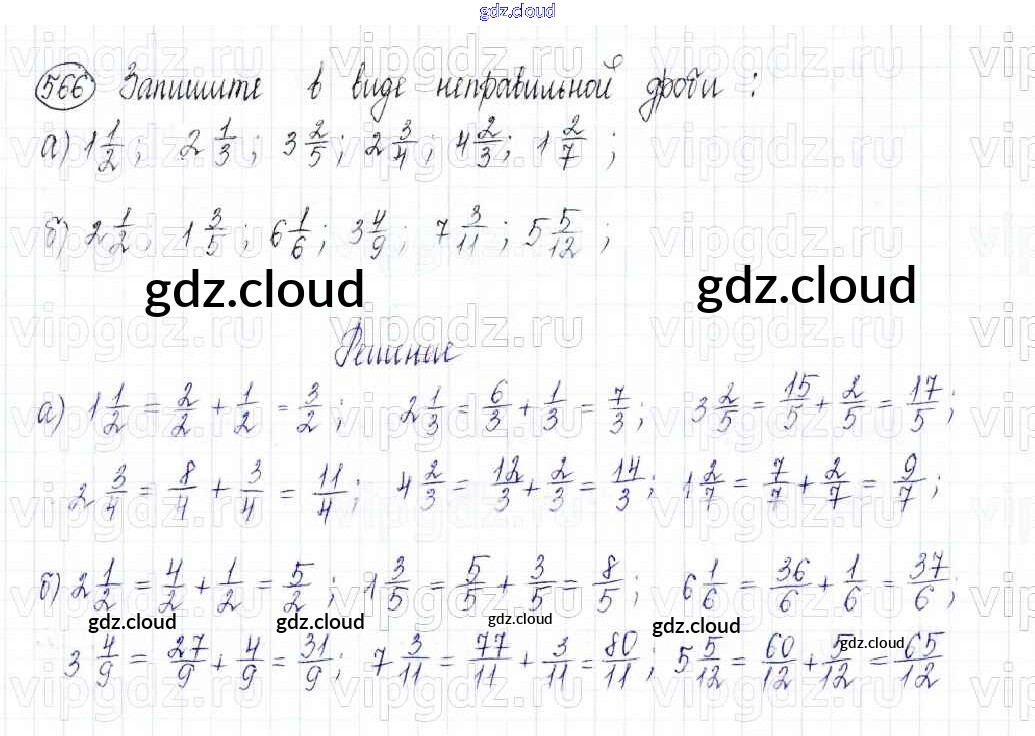 gdz.cloud
566 Запишите в виде неправильной дроби:
а) 1 1/2; 2 1/3; 3 2/5; 2 3/4; 4 2/3; 1 2/7;
б) 2 1/2; 1 3/5; 6 1/6; 3 4/9; 7 3/11; 5 5/12;
gdz.cloud gdz.cloud
Решение
а) 1 1/2 = 2/2 + 1/2 = 3/2; 2 1/3 = 6/3 + 1/3 = 7/3; 3 2/5 = 15/5 + 2/5 = 17/5;
2 3/4 = 8/4 + 3/4 = 11/4; 4 2/3 = 12/3 + 2/3 = 14/3; 1 2/7 = 7/7 + 2/7 = 9/7;
б) 2 1/2 = 4/2 + 1/2 = 5/2; 1 3/5 = 5/5 + 3/5 = 8/5; 6 1/6 = 36/6 + 1/6 = 37/6;
gdz.cloud gdz.cloud gdz.cloud gdz.cloud
3 4/9 = 27/9 + 4/9 = 31/9; 7 3/11 = 77/11 + 3/11 = 80/11; 5 5/12 = 60/12 + 5/12 = 65/12
gdz.cloud
vipgdz.ru